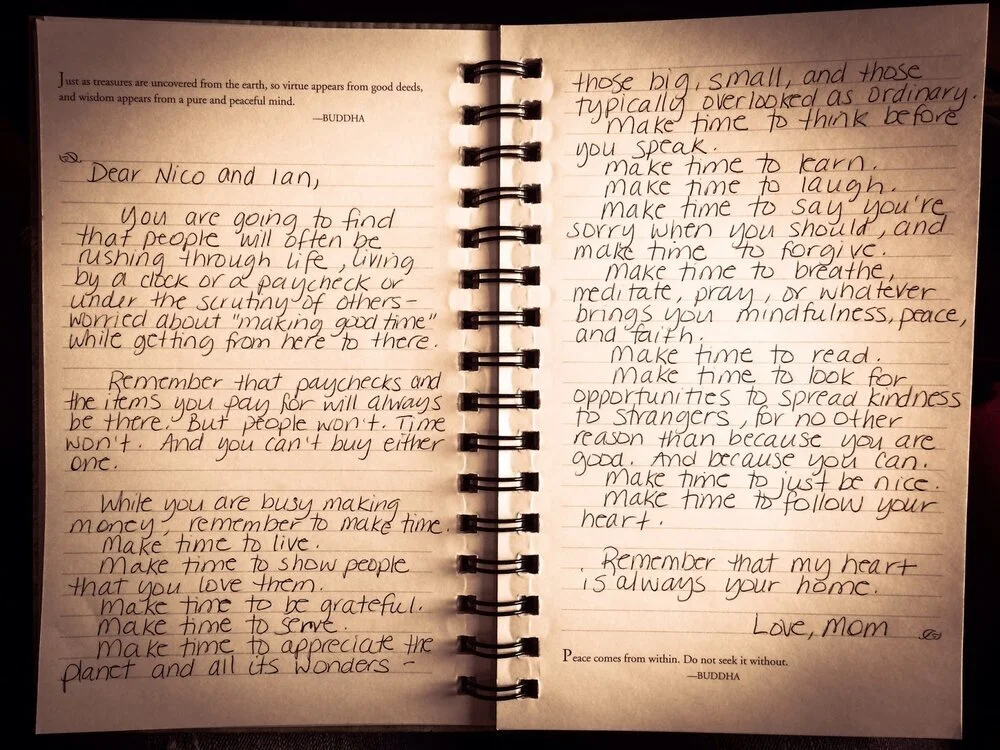 Just as treasures are uncovered from the earth, so virtue appears from good deeds,
and wisdom appears from a pure and peaceful mind.
—BUDDHA
Dear Nico and Ian,
You are going to find
that people will often be
rushing through life, living
by a clock or a paycheck or
under the scrutiny of others—
worried about "making good time"
while getting from here to there.
Remember that paychecks and
the items you pay for will always
be there. But people won't. Time
won't. And you can't buy either
one.
While you are busy making
money, remember to make time.
Make time to live.
Make time to show people
that you love them.
Make time to be grateful.
Make time to serve.
Make time to appreciate the
planet and all its wonders —
those big, small, and those
typically overlooked as ordinary.
Make time to think before
you speak.
Make time to learn.
Make time to laugh.
Make time to say you're
sorry when you should, and
make time to forgive.
Make time to breathe,
meditate, pray, or whatever
brings you mindfulness, peace,
and faith.
Make time to read.
Make time to look for
opportunities to spread kindness
to strangers, for no other
reason than because you are
good. And because you can.
Make time to just be nice.
Make time to follow your
heart.
Remember that my heart
is always your home.
Love, Mom
Peace comes from within. Do not seek it without.
—BUDDHA